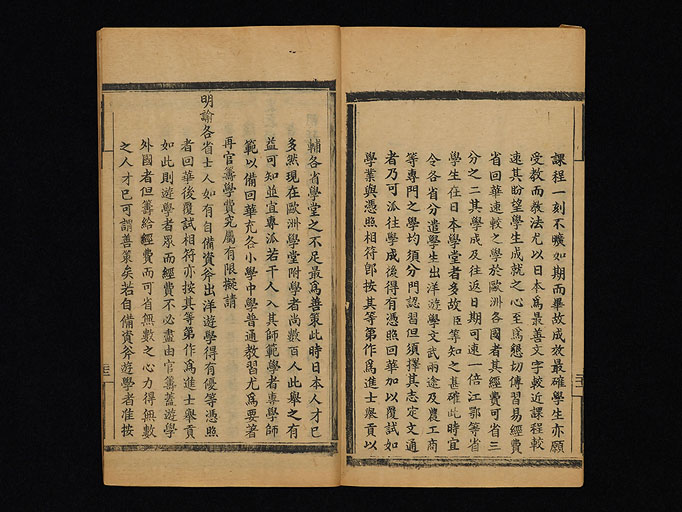 課程一刻不曠如期而畢故成效最確學生亦願
受教而教法尤以日本爲最善文字較近課程較
速其盼望學生成就之心至爲懇切傳習易經費
省回華速較之學於歐洲各國者其經費可省三
分之二其學成及往返日期可速一倍江鄂等省
學生在日本學堂者多故臣等知之甚確此時宜
令各省分遣學生出洋游學文武兩途及農工商
等專門之學均須分門認習但須擇其志定文通
者乃可派往學成後得有憑照回華加以覆試如
學業與憑照相符卽按其等第作爲進士舉貢以
輔各省學堂之不足最爲善策此時日本人才已
多然現在歐洲學堂附學者尚數百人此舉之有
益可知並宜專派若干人入其師範學者專學師
範以備回華充各小學中學普通教習尤爲要著
再官籌學費究屬有限擬請
明諭各省士人如有自備資斧出洋遊學得有優等憑照
者回華後覆試相符亦按其等第作爲進士舉貢
如此則遊學者眾而經費不必盡由官籌蓋遊學
外國者但籌給經費而可省無數之心力得無數
之人才已可謂善策矣若自備資斧遊學者准按